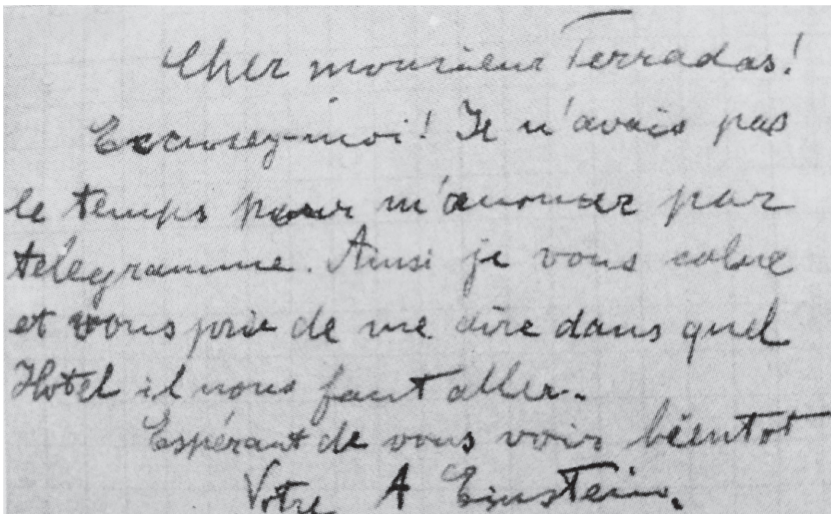 Cher monsieur Terradas!
Excusez-moi! Je n'avais pas
le temps pour m'anonser par
télégramme. Ainsi je vous salue
et vous prie de me dire dans quel
Hotel il nous faut aller.
Espérant de vous voir bientot
Votre A Einstein.